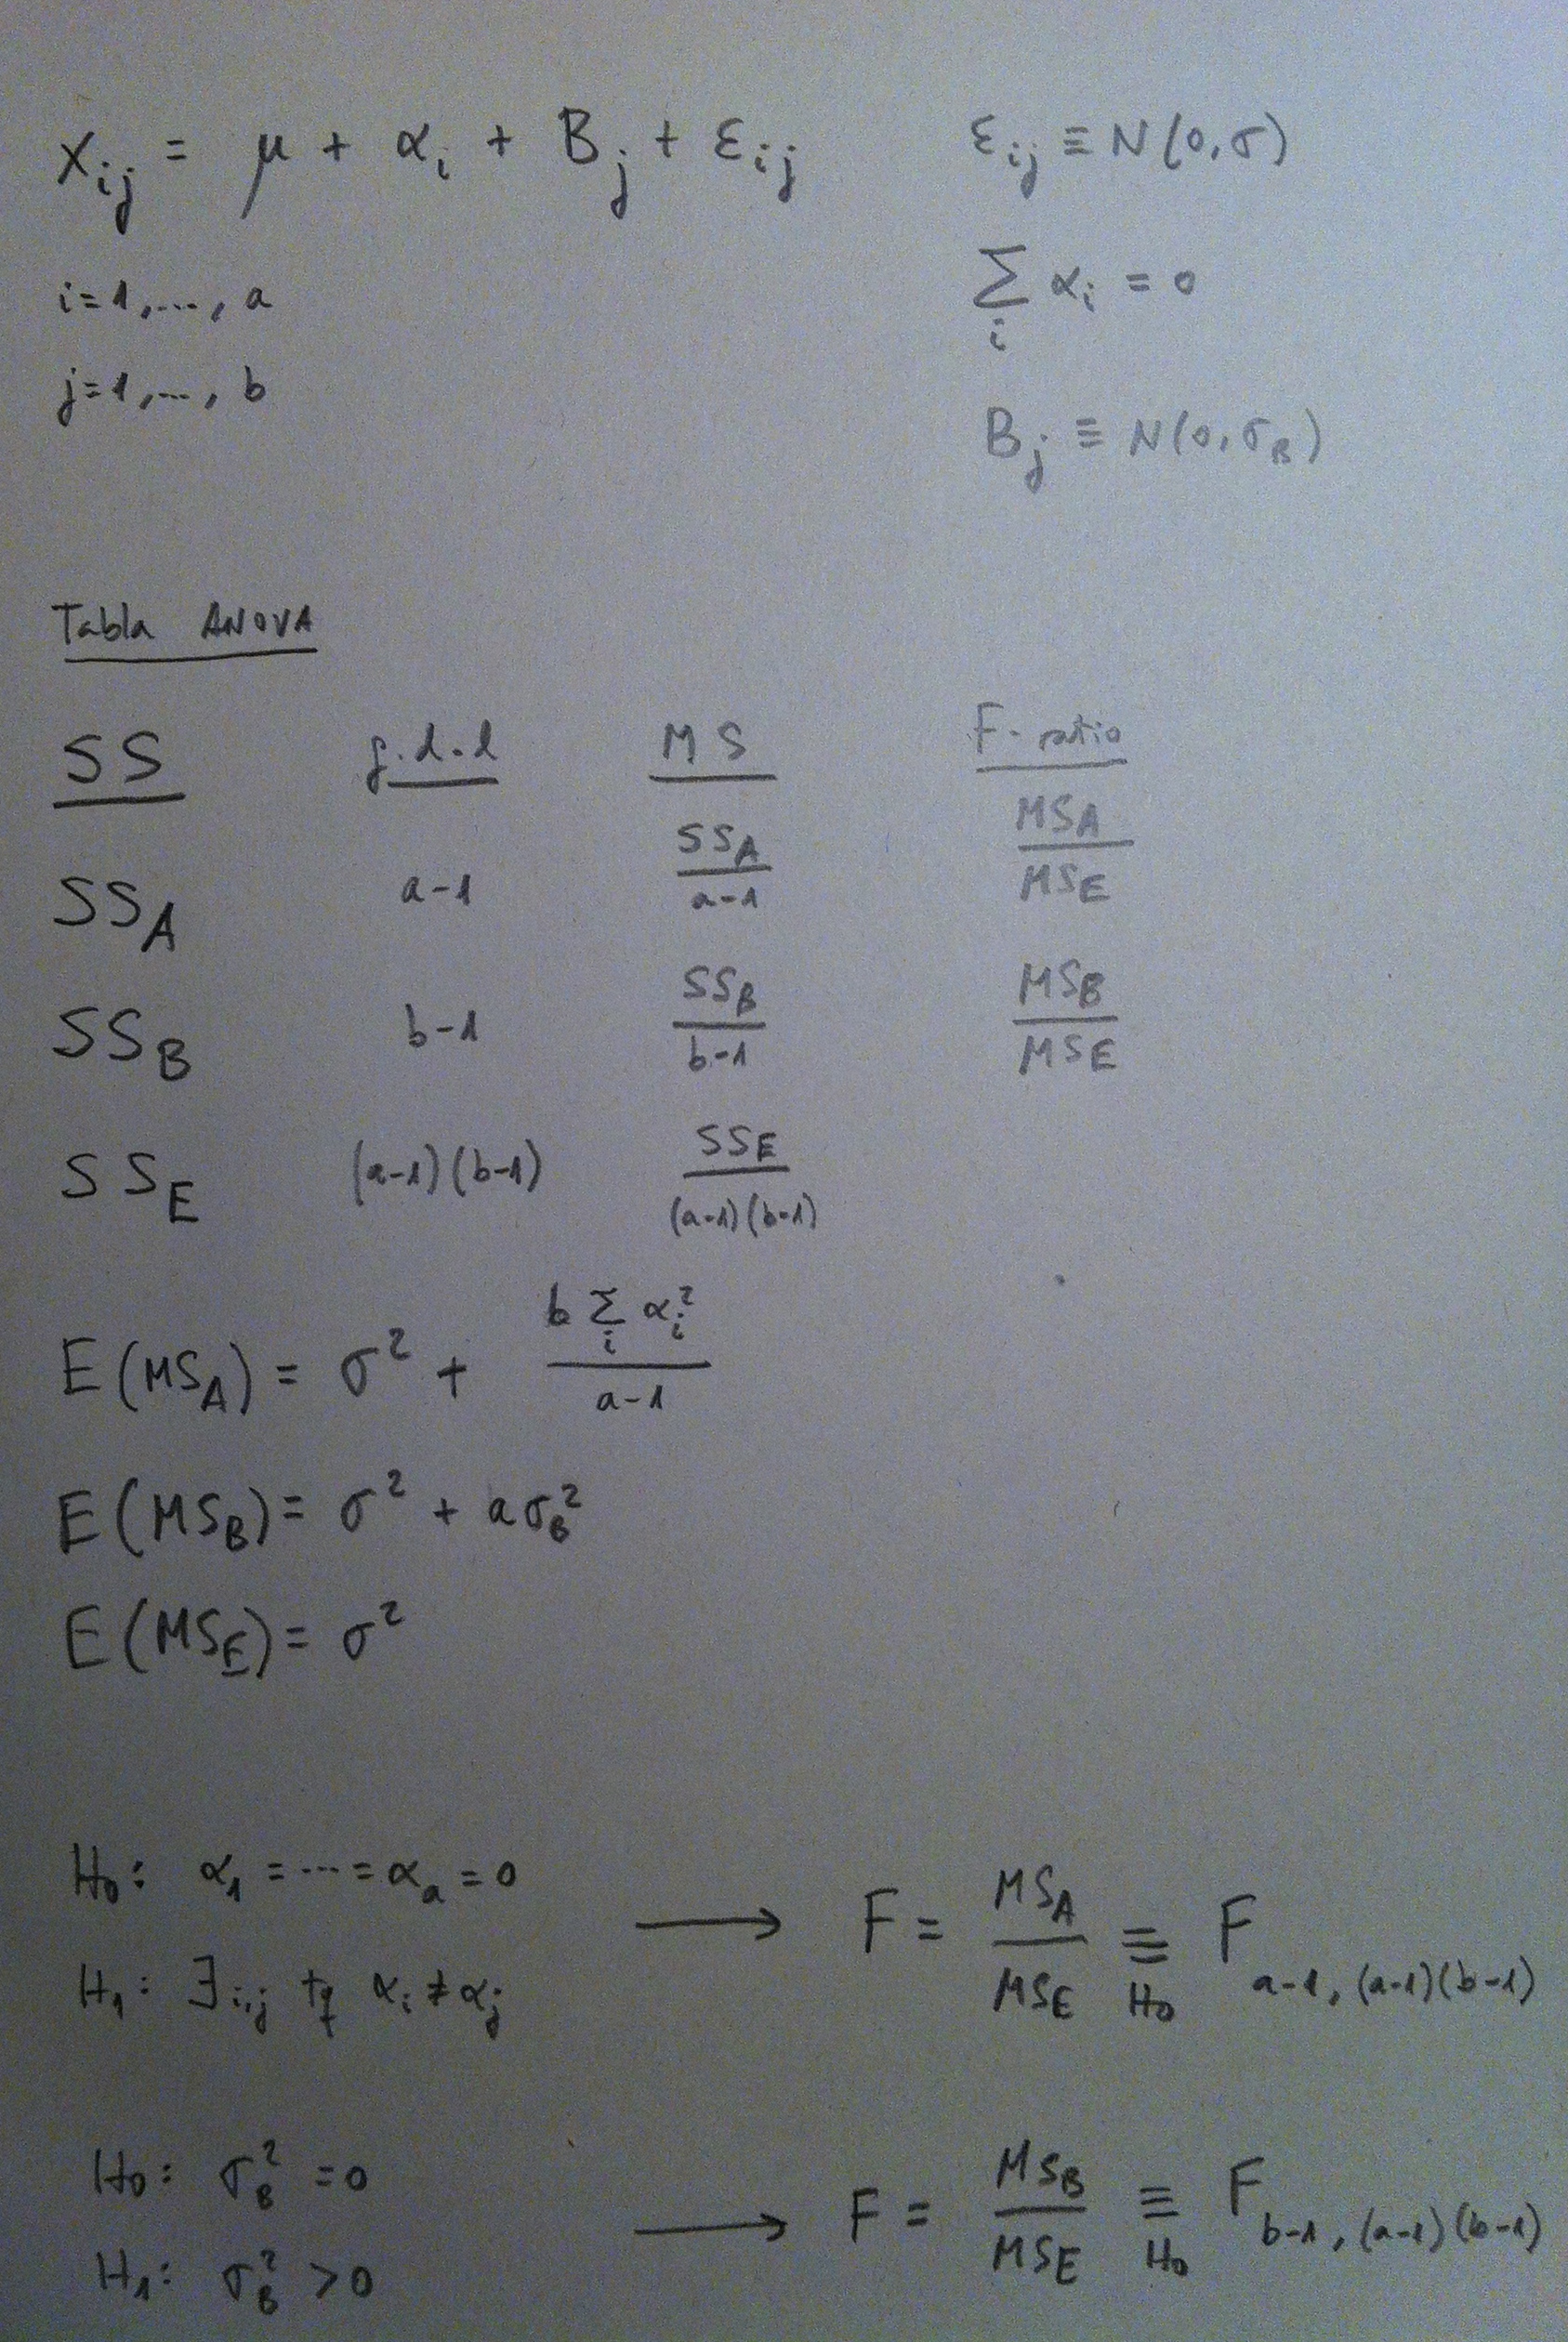 Xij = μ + αi + Bj + εij    εij ≡ N(0,σ)
i=1,...,a    ∑i αi = 0
j=1,...,b    Bj ≡ N(0,σB)
Tabla ANOVA
SS    g.d.l    MS    F-ratio
SSA    a-1    SSA/(a-1)    MSA/MSE
SSB    b-1    SSB/(b-1)    MSB/MSE
SSE    (a-1)(b-1)    SSE/((a-1)(b-1))
E(MSA) = σ² + (b ∑i αi²)/(a-1)
E(MSB) = σ² + aσB²
E(MSE) = σ²
H0: α1 = ... = αa = 0    ⟶ F = MSA/MSE ≡H0 F a-1, (a-1)(b-1)
H1: ∃ i,j tq αi ≠ αj
H0: σB² = 0    ⟶ F = MSB/MSE ≡H0 F b-1, (a-1)(b-1)
H1: σB² > 0